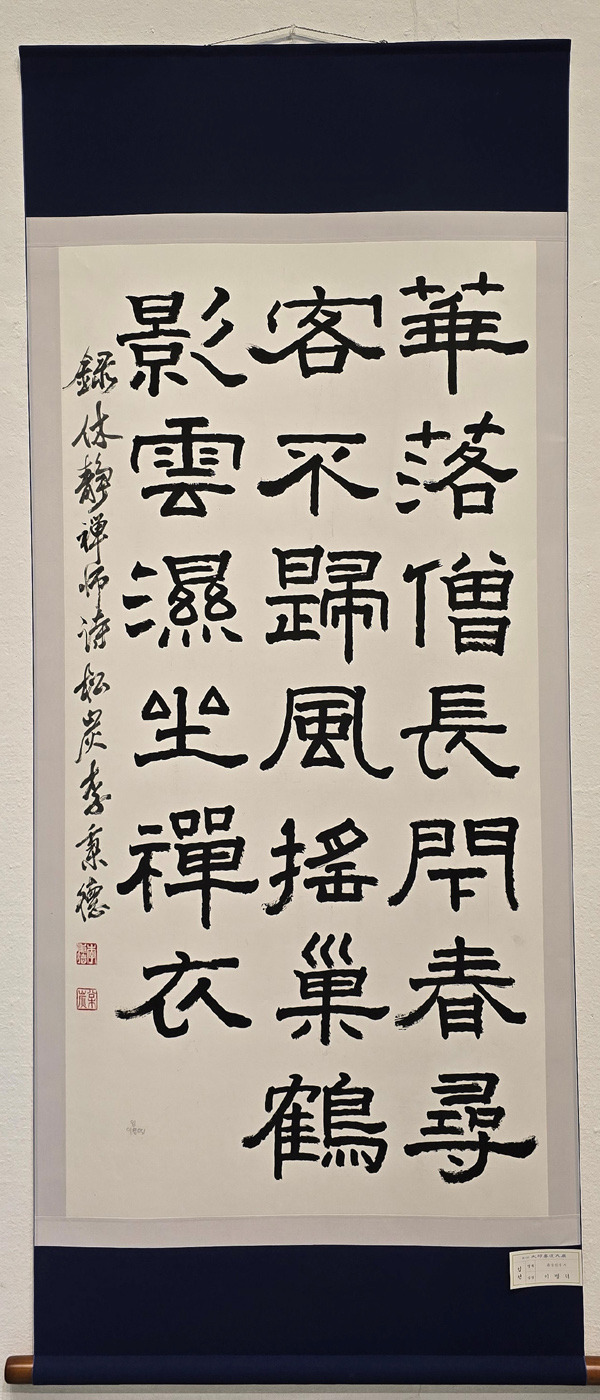 華落僧長閇春尋
客不歸風搖巢鶴
影雲濕坐禪衣
錄休靜禪師詩松炭李秉德
입선
이병덕